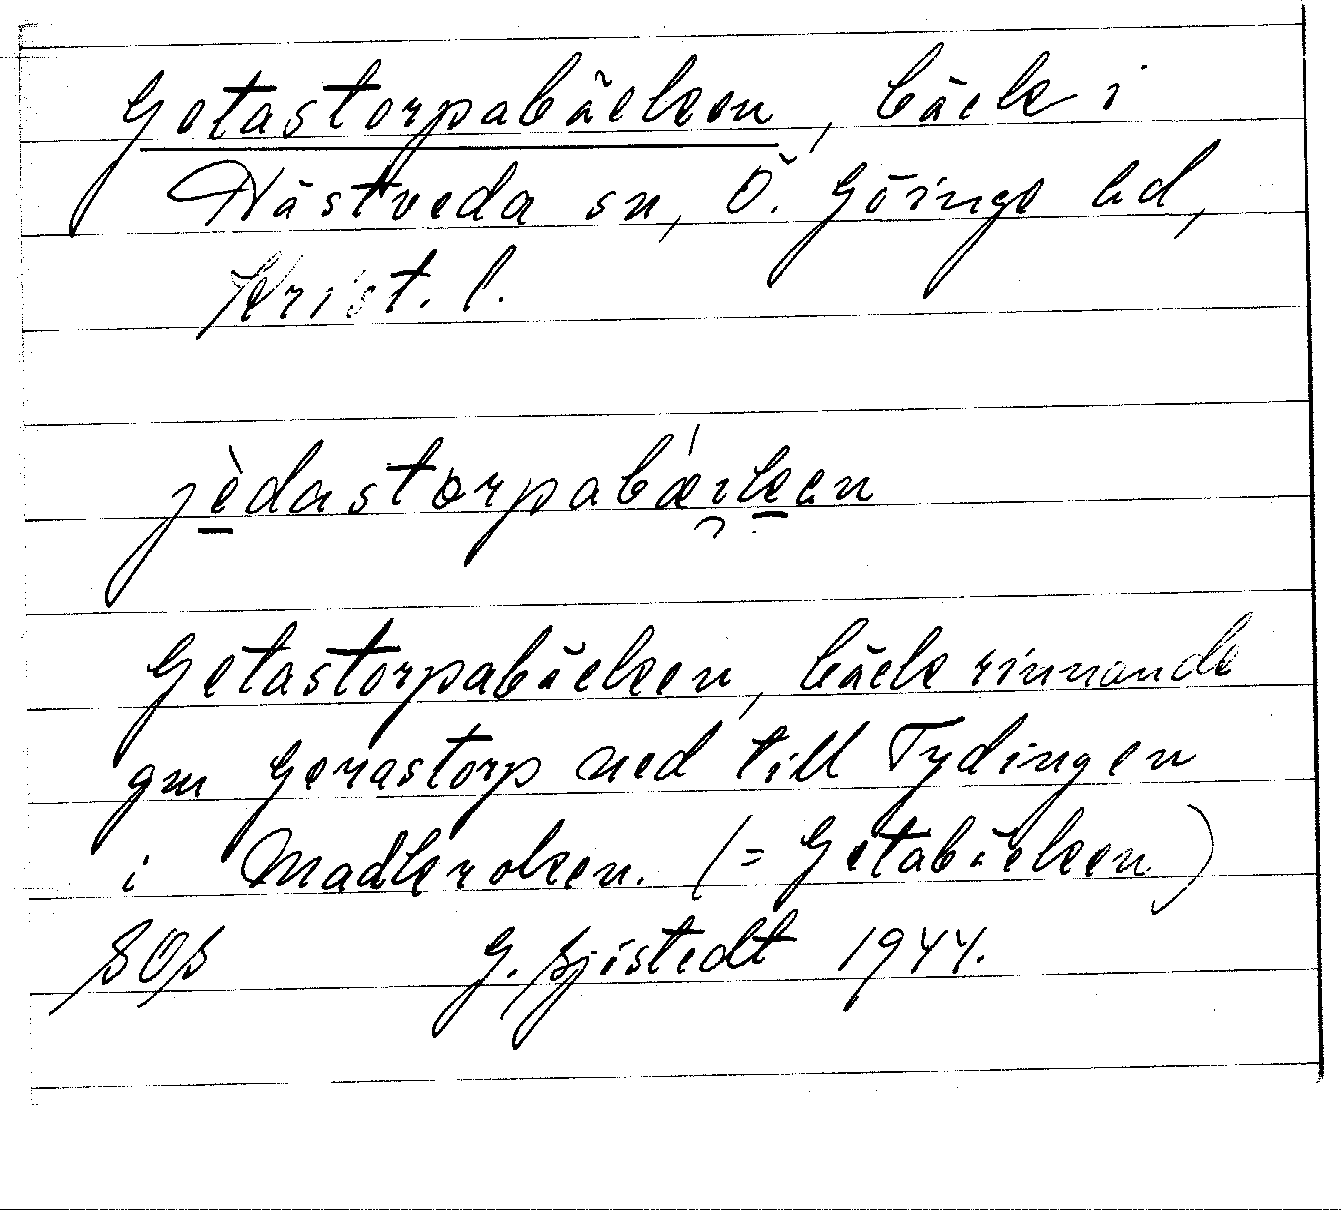 Getastorpabäcken, bäck i
Hästveda sn, Ö. Göinge hd,
Krist. l.
jèdastorpabǽrken
Getastorpabäcken, bäck rinnande
gm Gerastorp ned till Tydingen
i Madkroken. (= Getabäcken)
SOS G. Sjöstedt 1944.